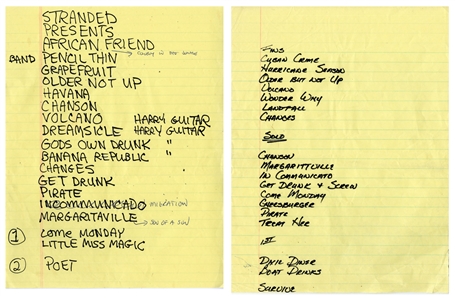 STRANDED
PRESENTS
AFRICAN FRIEND
BAND PENCIL THIN
GRAPEFRUIT
OLDER NOT UP
HAVANA
CHANSON
VOLCANO HARRY GUITAR
DREAMSICLE HARRY GUITAR
GODS OWN DRUNK "
BANANA REPUBLIC "
CHANGES
GET DRUNK
PIRATE
INCOMMUNICADO
MARGARITAVILLE
SON OF A SON
1 COME MONDAY
LITTLE MISS MAGIC
2 POET
FINS
CUBAN CRIME
HURRICANE SEASON
OLDER BUT NOT UP
VOLCANO
WONDER WHY
LANDFALL
CHANGES
SOLO
CHANSON
MARGARITTVILLE
IN COMMUNICATO
GET DRUNK & SCREW
COME MONDAY
CHEESBURGER
PIRATE
TREAT HER
1ST
DIXIE DINER
BOAT DRINKS
SURVIVE